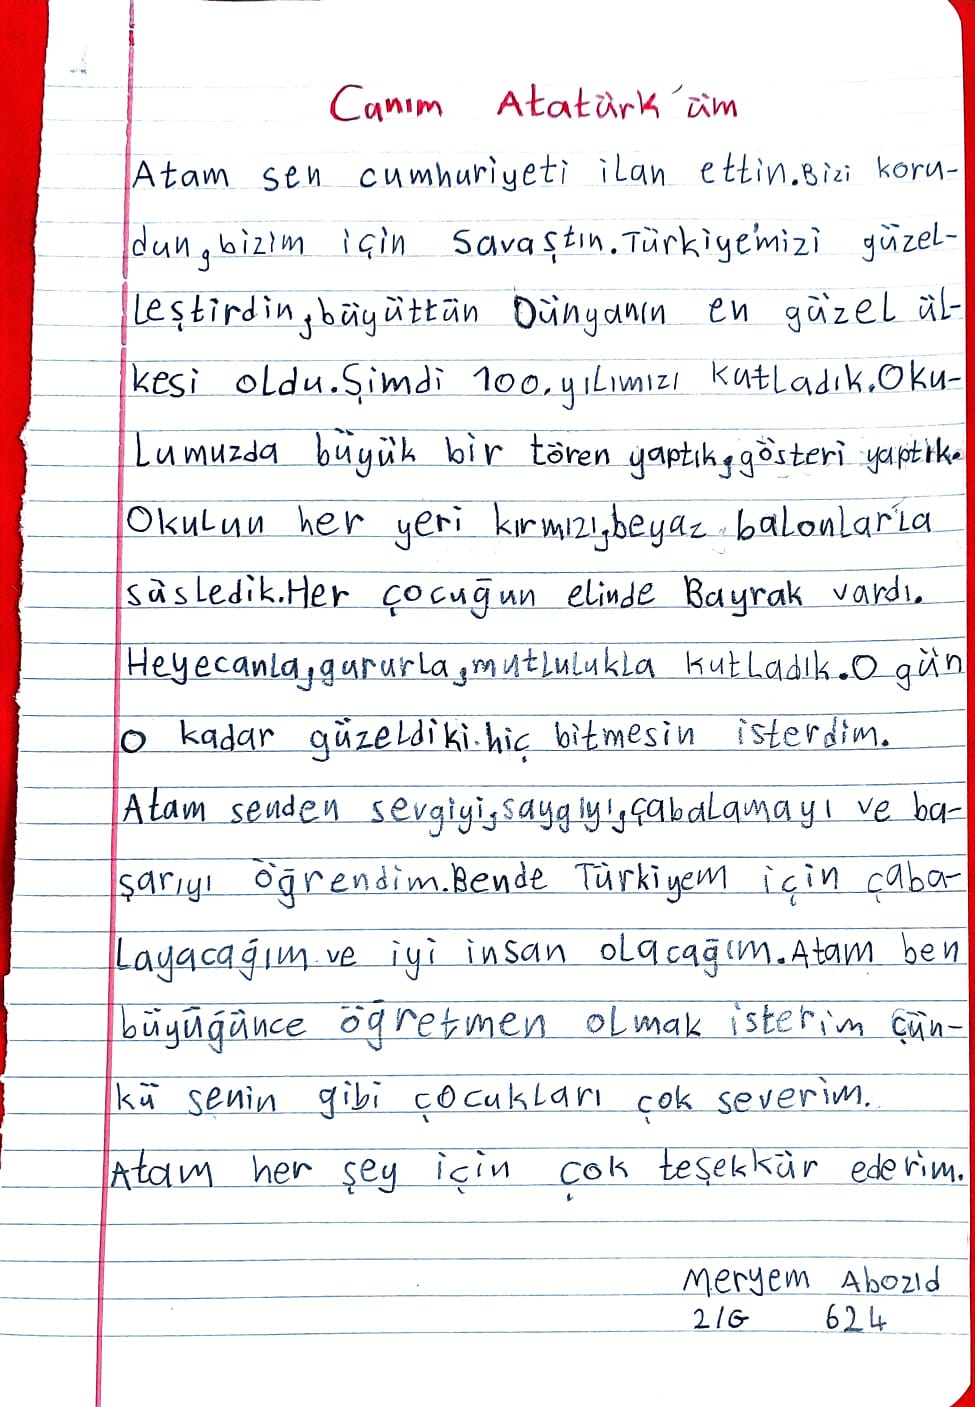 Canım Atatürk'üm
Atam sen cumhuriyeti ilan ettin.Bizi koru-
dun,bizim için Savaştın.Türkiye'mizi güzel-
leştirdin,büyüttün Dünyanın en güzel ül-
kesi oldu.Şimdi 100.yılımızı kutladık.Oku-
lumuzda büyük bir tören yaptık,gösteri yaptık.
Okulun her yeri kırmızı,beyaz balonlar'la
süsledik.Her çocuğun elinde Bayrak vardı.
Heyecanla,gururla,mutlulukla kutladık.O gün
o kadar güzeldiki.hiç bitmesin isterdim.
Atam senden sevgiyi,saygıyı,çabalamayı ve ba-
şarıyı öğrendim.Bende Türkiyem için çaba-
layacağım ve iyi insan olacağım.Atam ben
büyüğünce öğretmen olmak isterim çün-
kü senin gibi çocukları çok severim.
Atam her şey için çok teşekkür ederim.
Meryem Abozıd
2/G 624